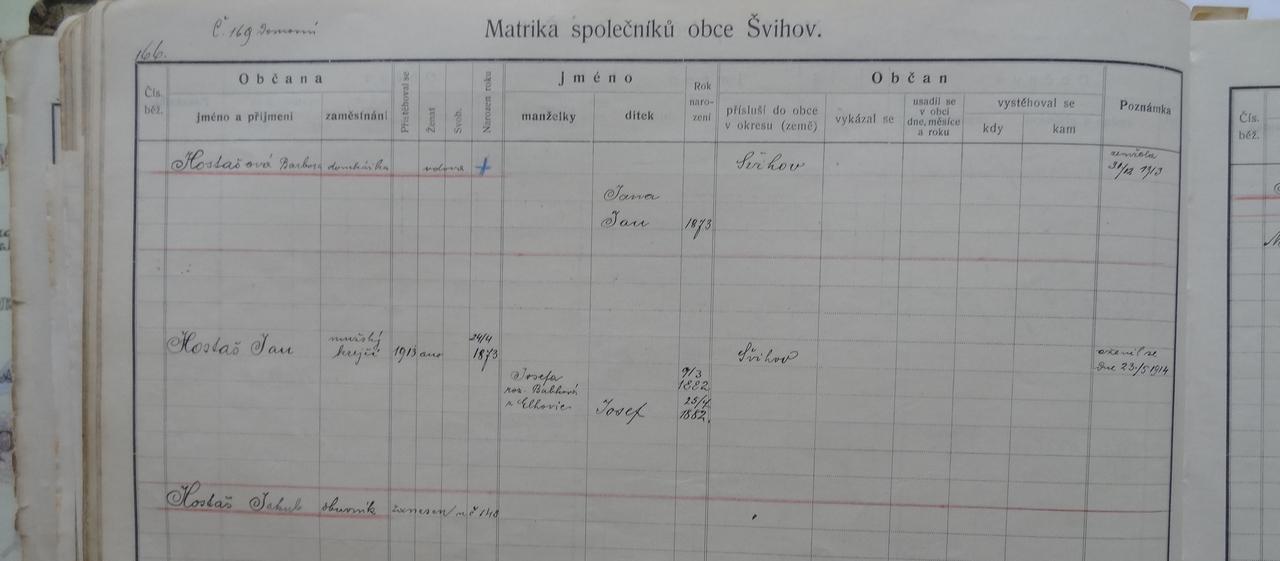 Č. 169 Domovní
Matrika společníků obce Švihov.
166.
Čís. běž.
Občana
jméno a příjmení
zaměstnání
Přistěhoval se
Ženat
Svob.
Narozen roku
Jméno
manželky
dítek
Rok naro- zení
Občan
přísluší do obce v okresu (země)
vykázal se
usadil se v obci dne, měsíce a roku
vystěhoval se
kdy
kam
Poznámka
Čís. běž.
Hostašová Barbora domkářka vdova + Švihov zemřela
31/12 1913
Jana
Jan 1873
Hostaš Jan mužský krejčí 1913 ano 24/4 1873 Švihov oženil se
dne 23./5 1914
Josefa 9/3 1882
roz.
z Elhovic Josef 1882.
Hostaš Jakub obuvník zanesen v č 148